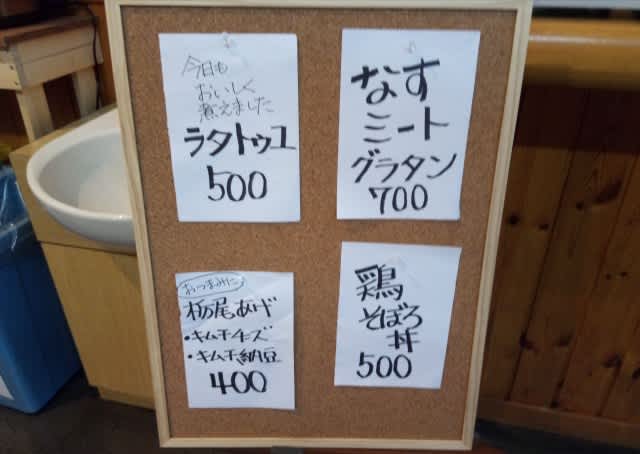 今日も
おいしく
煮えました
ラタトゥユ
500
なす
ミート
グラタン
700
おつまみに
栃尾あげ
・キムチチーズ
・キムチ納豆
400
鶏
そぼろ
丼
500